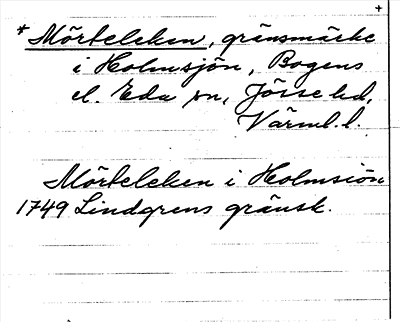 +
* Mörteleken, gränsmärke
i Holmsjön, Bogens
el. Eda sn, Jösse hd,
Värml. l.
Mörteleken i Holmsiön
1749 Lindgrens gränsk.